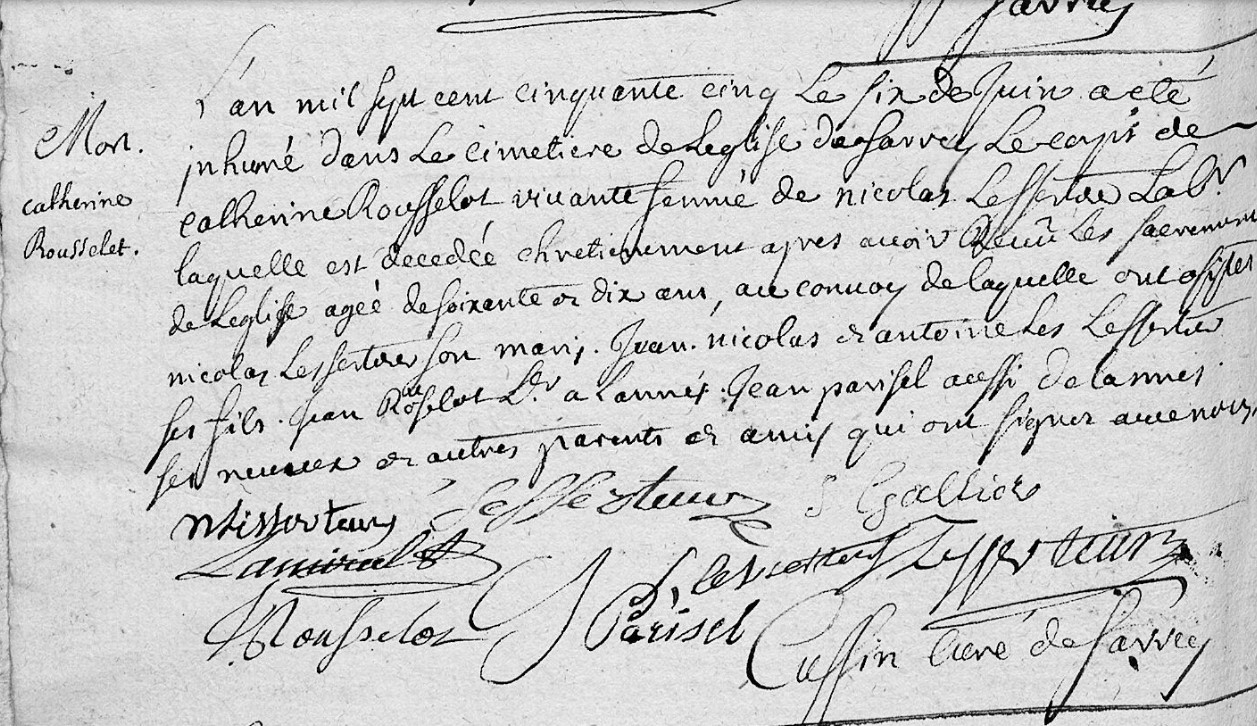 Sarrey
L'an mil sept cent cinquante cinq Le six de Juin a eté
Mort.
inhumé dans Le cimetiere de Leglise de Sarrey Le corps de
catherine
Rousselet.
catherine Rousselot vivante femme de nicolas Lesserteur Labr
laquelle est décedée chretiennement apres avoir Receu Les sacremens
de Leglise ageé de soixante et dix ans, au convoy de laquelle ont assistes
nicolas Lesserteur son mary. Jean. nicolas et antoine Les Lesserteur
ses fils. Jean Rousselot Lr a Lannes. Jean parisel aussi de Lannes
ses neveux et autres parents et amis qui ont signer avec nous
nLisserteur Lesserteur J Gallier
Lamiral Lesserteur Lesserteur
Rousselot J Parisel Cussin curé de Sarrey